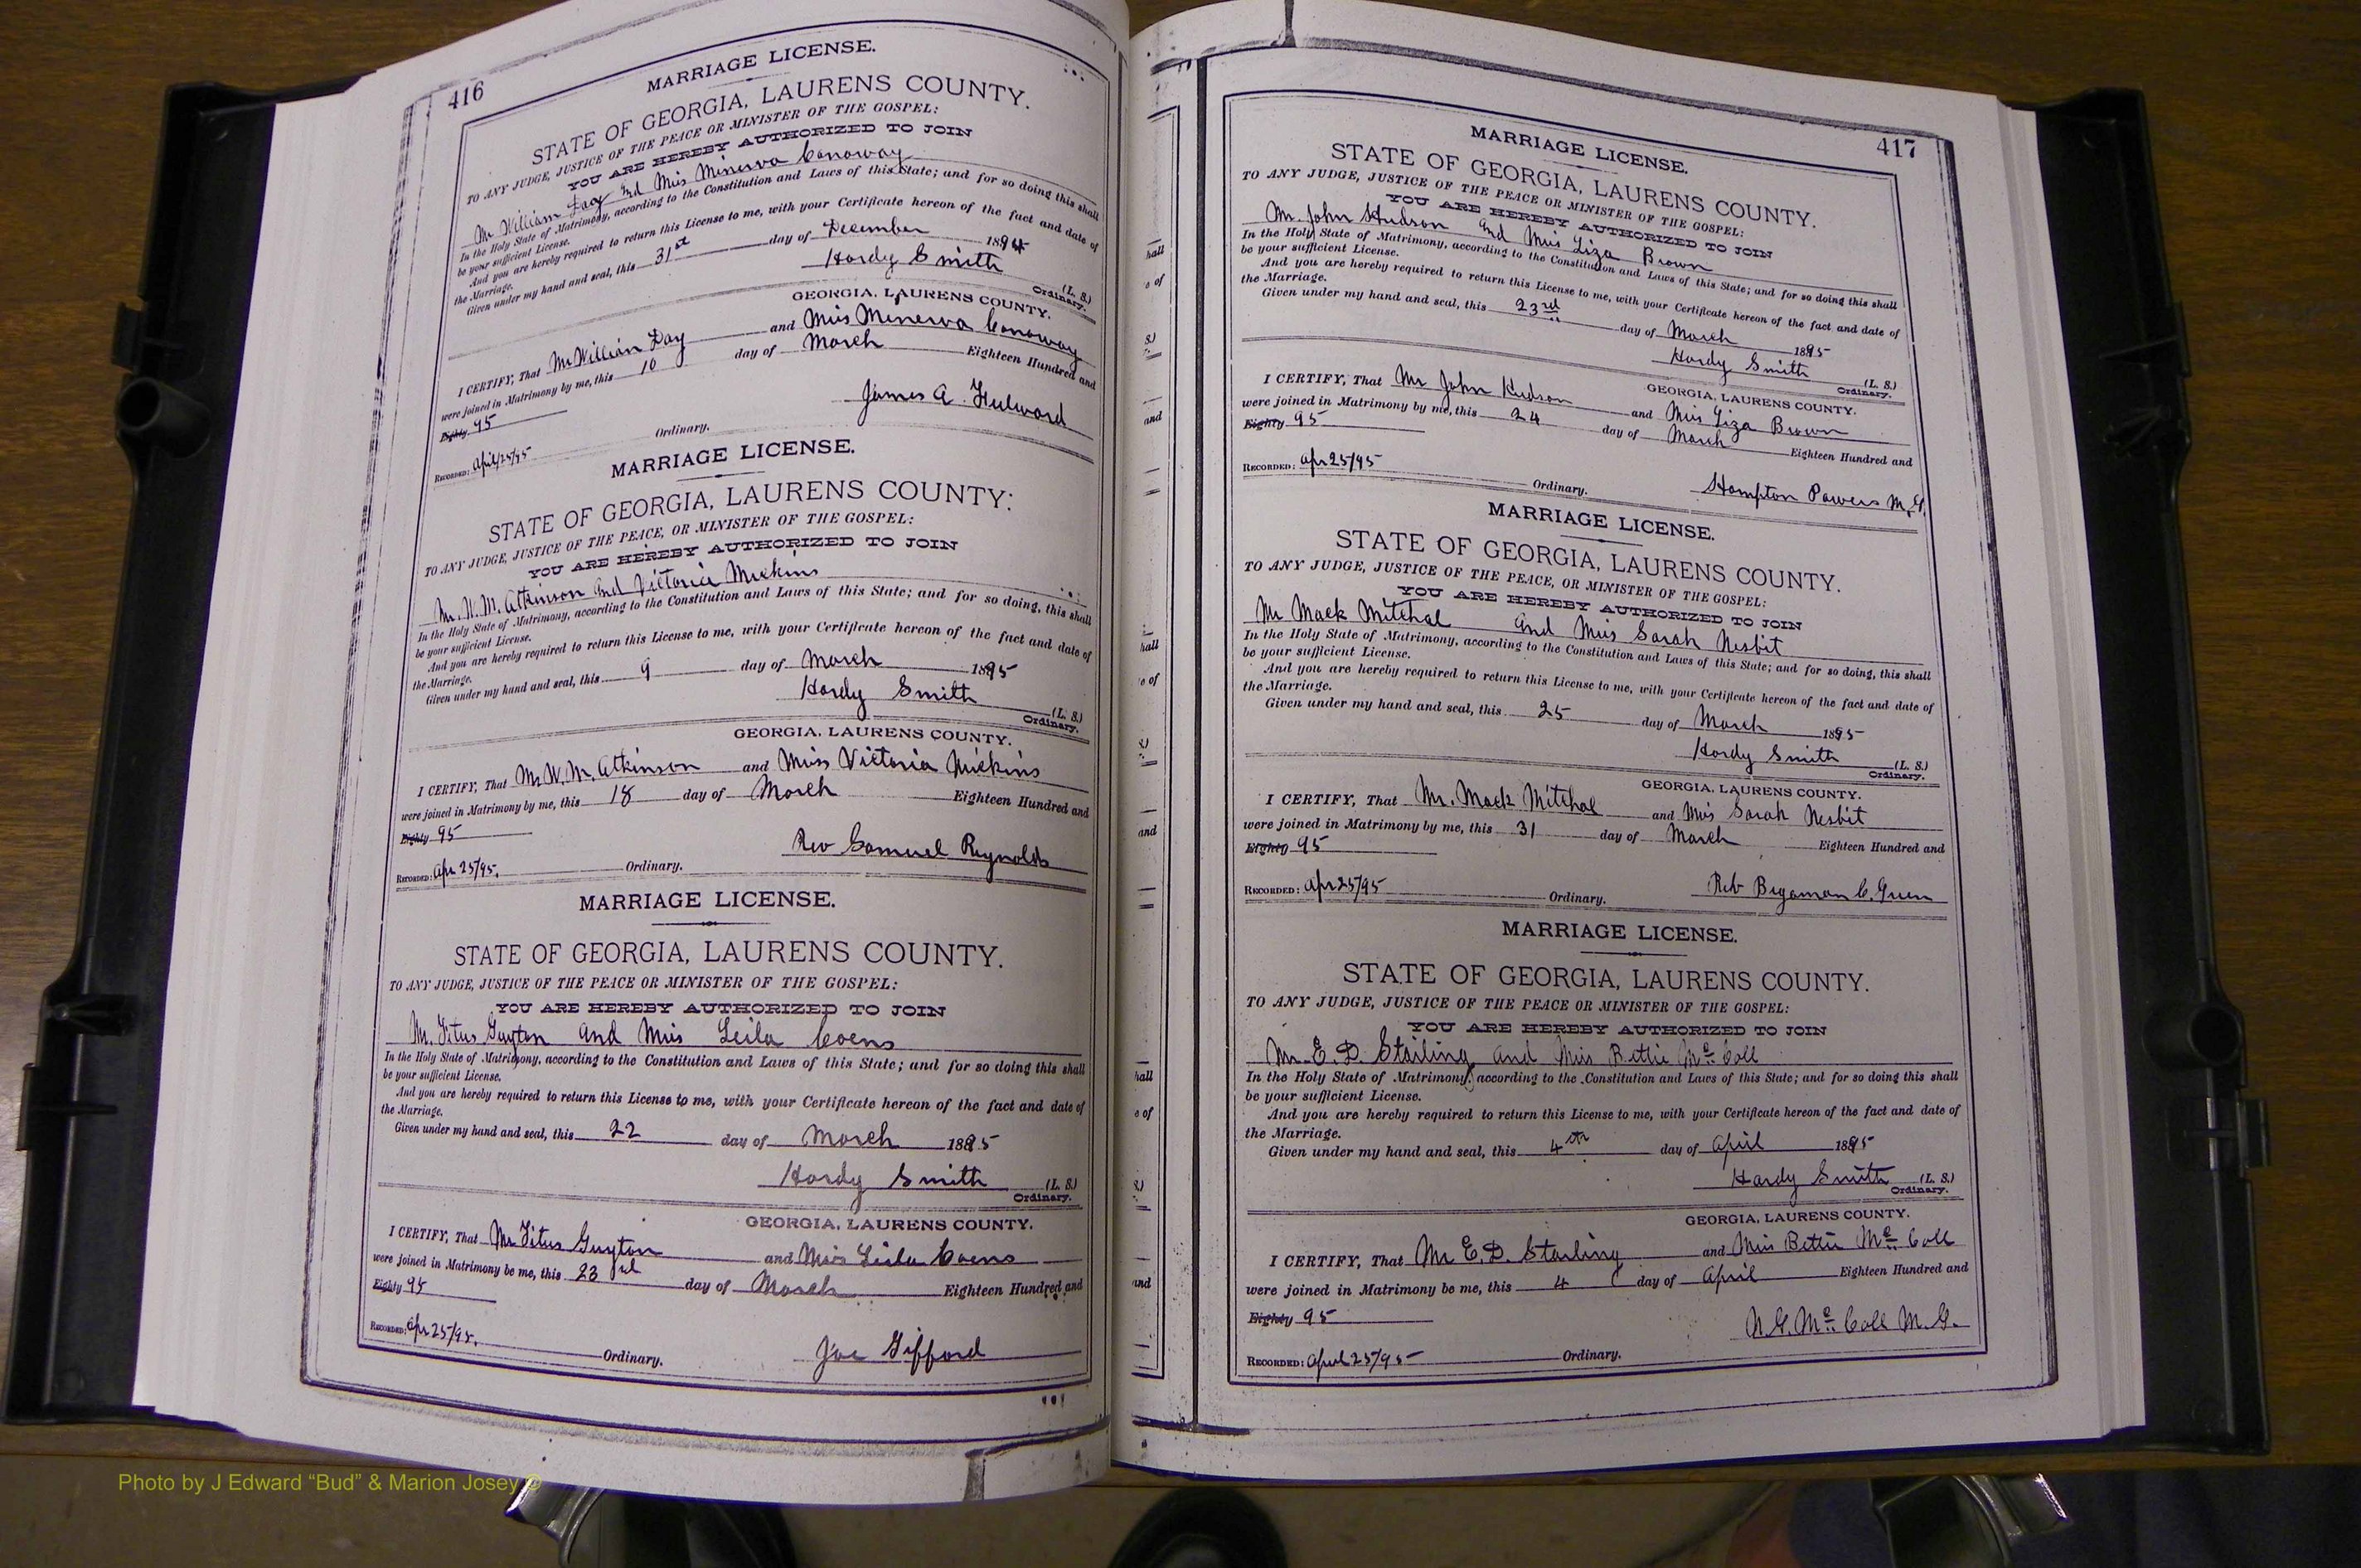 416
MARRIAGE LICENSE.
STATE OF GEORGIA, LAURENS COUNTY.
TO ANY JUDGE, JUSTICE OF THE PEACE OR MINISTER OF THE GOSPEL:
YOU ARE HEREBY AUTHORIZED TO JOIN
Mr William Day and Miss Minerva Conoway
In the Holy State of Matrimony, according to the Constitution and Laws of this State; and for so doing this shall
be your sufficient License.
And you are hereby required to return this License to me, with your Certificate hereon of the fact and date of
the Marriage.
Given under my hand and seal, this 31st day of December 1894
Hardy Smith (L. S.)
Ordinary.
GEORGIA, LAURENS COUNTY.
I CERTIFY, That Mr William Day and Miss Minerva Conoway
were joined in Matrimony by me, this 10 day of March Eighteen Hundred and
Eighty 95
James A.
RECORDED: April 25/95 Ordinary.
MARRIAGE LICENSE.
STATE OF GEORGIA, LAURENS COUNTY:
TO ANY JUDGE, JUSTICE OF THE PEACE, OR MINISTER OF THE GOSPEL:
YOU ARE HEREBY AUTHORIZED TO JOIN
Mr. W. M. Atkinson and Victoria Mickins
In the Holy State of Matrimony, according to the Constitution and Laws of this State; and for so doing, this shall
be your sufficient License.
And you are hereby required to return this License to me, with your Certificate hereon of the fact and date of
the Marriage.
Given under my hand and seal, this 9 day of March 1895
Hardy Smith (L. S.)
Ordinary.
GEORGIA, LAURENS COUNTY.
I CERTIFY, That Mr. W. M. Atkinson and Miss Victoria Mickins
were joined in Matrimony by me, this 18 day of March Eighteen Hundred and
Eighty 95
Rev Samuel Reynolds
RECORDED: Apr 25/95. Ordinary.
MARRIAGE LICENSE.
STATE OF GEORGIA, LAURENS COUNTY.
TO ANY JUDGE, JUSTICE OF THE PEACE OR MINISTER OF THE GOSPEL:
YOU ARE HEREBY AUTHORIZED TO JOIN
Mr. Titus Guyton and Miss Leila Coens
In the Holy State of Matrimony, according to the Constitution and Laws of this State; and for so doing this shall
be your sufficient License.
And you are hereby required to return this License to me, with your Certificate hereon of the fact and date of
the Marriage.
Given under my hand and seal, this 22 day of March 1895
Hardy Smith (L. S.)
Ordinary.
GEORGIA, LAURENS COUNTY.
I CERTIFY, That Mr Titus Guyton and Miss Leila Coens
were joined in Matrimony be me, this 23rd day of March Eighteen Hundred and
Eighty 95
RECORDED: Apr 25/95.
Ordinary. Joe Gifford
417
MARRIAGE LICENSE.
STATE OF GEORGIA, LAURENS COUNTY.
TO ANY JUDGE, JUSTICE OF THE PEACE OR MINISTER OF THE GOSPEL:
YOU ARE HEREBY AUTHORIZED TO JOIN
Mr. John Hudson and Miss Liza Brown
In the Holy State of Matrimony, according to the Constitution and Laws of this State; and for so doing this shall
be your sufficient License.
And you are hereby required to return this License to me, with your Certificate hereon of the fact and date of
the Marriage.
Given under my hand and seal, this 23rd day of March 1895
Hardy Smith (L. S.)
Ordinary.
GEORGIA, LAURENS COUNTY.
I CERTIFY, That Mr John Hudson and Miss Liza Brown
were joined in Matrimony by me, this 24 day of March Eighteen Hundred and
Eighty 95
RECORDED: Apr 25/95 Ordinary. Hampton Powers M. G.
MARRIAGE LICENSE.
STATE OF GEORGIA, LAURENS COUNTY.
TO ANY JUDGE, JUSTICE OF THE PEACE, OR MINISTER OF THE GOSPEL:
YOU ARE HEREBY AUTHORIZED TO JOIN
Mr Mack Mitchal and Miss Sarah Nesbit
In the Holy State of Matrimony, according to the Constitution and Laws of this State; and for so doing, this shall
be your sufficient License.
And you are hereby required to return this License to me, with your Certificate hereon of the fact and date of
the Marriage.
Given under my hand and seal, this 25 day of March 1895
Hardy Smith (L. S.)
Ordinary.
GEORGIA, LAURENS COUNTY.
I CERTIFY, That Mr. Mack Mitchal and Miss Sarah Nesbit
were joined in Matrimony by me, this 31 day of March Eighteen Hundred and
Eighty 95
RECORDED: Apr 25/95 Ordinary. Rev C. Green
MARRIAGE LICENSE.
STATE OF GEORGIA, LAURENS COUNTY.
TO ANY JUDGE, JUSTICE OF THE PEACE OR MINISTER OF THE GOSPEL:
YOU ARE HEREBY AUTHORIZED TO JOIN
Mr. E. D. Starling and Miss Bettie McCall
In the Holy State of Matrimony, according to the Constitution and Laws of this State; and for so doing this shall
be your sufficient License.
And you are hereby required to return this License to me, with your Certificate hereon of the fact and date of
the Marriage.
Given under my hand and seal, this 4th day of April 1895
Hardy Smith (L. S.)
Ordinary.
GEORGIA, LAURENS COUNTY.
I CERTIFY, That Mr E. D. Starling and Miss Bettie McCall
were joined in Matrimony be me, this 4 day of April Eighteen Hundred and
Eighty 95
N. G. McCall M. G.
RECORDED: April 25/95 Ordinary.
Photo by J Edward “Bud” & Marion Josey ©